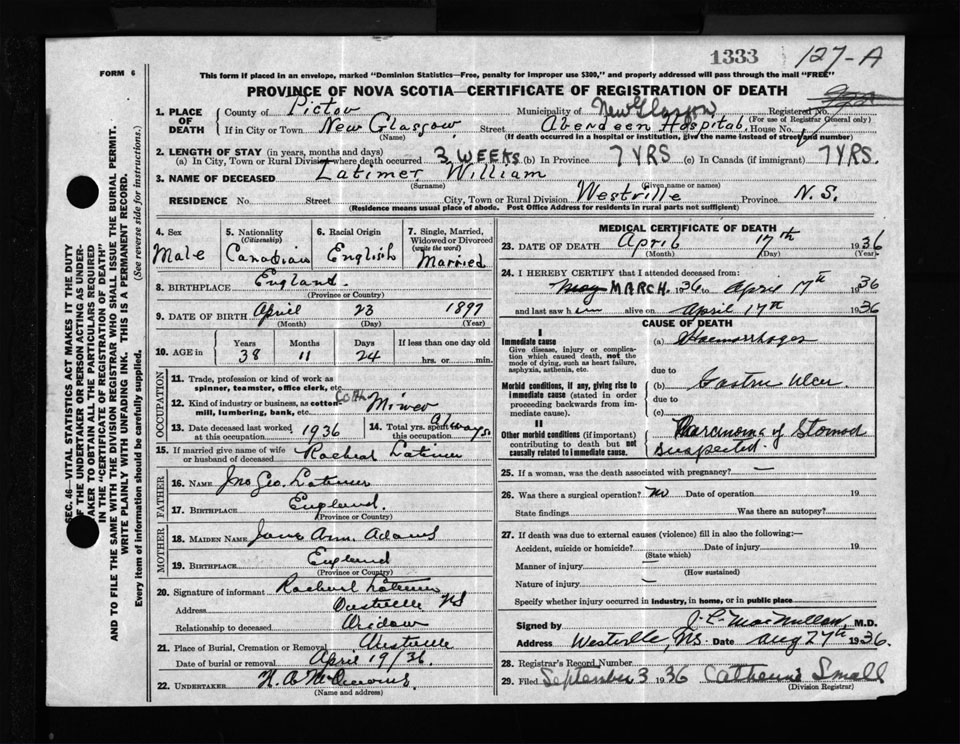 1333 127-A
FORM 6
This form if placed in an envelope, marked "Dominion Statistics—Free, penalty for improper use $300," and properly addressed will pass through the mail "FREE"
PROVINCE OF NOVA SCOTIA—CERTIFICATE OF REGISTRATION OF DEATH
1. PLACE OF DEATH
County of Pictou Municipality of New Glasgow Registered No.
(For use of Registrar General only)
If in City or Town New Glasgow Street Aberdeen Hospital House No.
(Name) (If death occurred in a hospital or institution, give the name instead of street and number)
2. LENGTH OF STAY (in years, months and days)
(a) In City, Town or Rural Division where death occurred 3 WEEKS (b) In Province 7 YRS (c) In Canada (if immigrant) 7 YRS.
3. NAME OF DECEASED Latimer William
(Surname) (Given name or names)
RESIDENCE No. Street City, Town or Rural Division Westville Province N.S.
(Residence means usual place of abode. Post Office Address for residents in rural parts not sufficient)
4. Sex Male
5. Nationality (Citizenship) Canadian
6. Racial Origin English
7. Single, Married, Widowed or Divorced (write the word) Married
8. BIRTHPLACE England
(Province or Country)
9. DATE OF BIRTH April 23 1897
(Month) (Day) (Year)
10. AGE in Years Months Days If less than one day old
38 11 24 hrs. or min.
OCCUPATION
11. Trade, profession or kind of work as spinner, teamster, office clerk, etc.
12. Kind of industry or business, as cotton-mill, lumbering, bank, etc. Coal Miner
13. Date deceased last worked at this occupation 1936
14. Total yrs. spent in this occupation always
15. If married give name of wife or husband of deceased Racheal Latimer
FATHER
16. NAME Jno Geo. Latimer
17. BIRTHPLACE England
(Province or Country)
MOTHER
18. MAIDEN NAME Jane Ann Adams
19. BIRTHPLACE England
(Province or Country)
20. Signature of informant Racheal Latimer
Address Westville NS
Relationship to deceased Widow
21. Place of Burial, Cremation or Removal Westville
Date of burial or removal April 19/36
22. UNDERTAKER
(Name and address)
MEDICAL CERTIFICATE OF DEATH
23. DATE OF DEATH April 17th 1936
(Month) (Day) (Year)
24. I HEREBY CERTIFY that I attended deceased from:
May MARCH 1936 to April 17th 1936
and last saw him alive on April 17th 1936
CAUSE OF DEATH
I
Immediate cause
Give disease, injury or complication which caused death, not the mode of dying, such as heart failure, asphyxia, asthenia, etc.
(a) Haemorrhages
due to
Morbid conditions, if any, giving rise to immediate cause (stated in order proceeding backwards from immediate cause).
(b) Gastric Ulcer
due to
(c)
II
Other morbid conditions (if important) contributing to death but not causally related to immediate cause.
Carcinoma of Stomach Suspected
25. If a woman, was the death associated with pregnancy? —
26. Was there a surgical operation? no Date of operation 19
State findings Was there an autopsy?
27. If death was due to external causes (violence) fill in also the following:—
Accident, suicide or homicide? Date of injury 19
(State which)
Manner of injury —
(How sustained)
Nature of injury —
Specify whether injury occurred in industry, in home, or in public place
Signed by J. L. MacMillan, M.D.
Address Westville, N.S. Date Aug 27th 1936
28. Registrar's Record Number
29. Filed September 3 1936 Catherine Small
(Division Registrar)
SEC. 46—VITAL STATISTICS ACT MAKES IT THE DUTY OF THE UNDERTAKER OR PERSON ACTING AS UNDERTAKER TO OBTAIN ALL THE PARTICULARS REQUIRED IN THE "CERTIFICATE OF REGISTRATION OF DEATH" AND TO FILE THE SAME WITH THE DIVISION REGISTRAR WHO SHALL ISSUE THE BURIAL PERMIT.
WRITE PLAINLY WITH UNFADING INK. THIS IS A PERMANENT RECORD.
Every item of information should be carefully supplied. (See reverse side for instructions.)